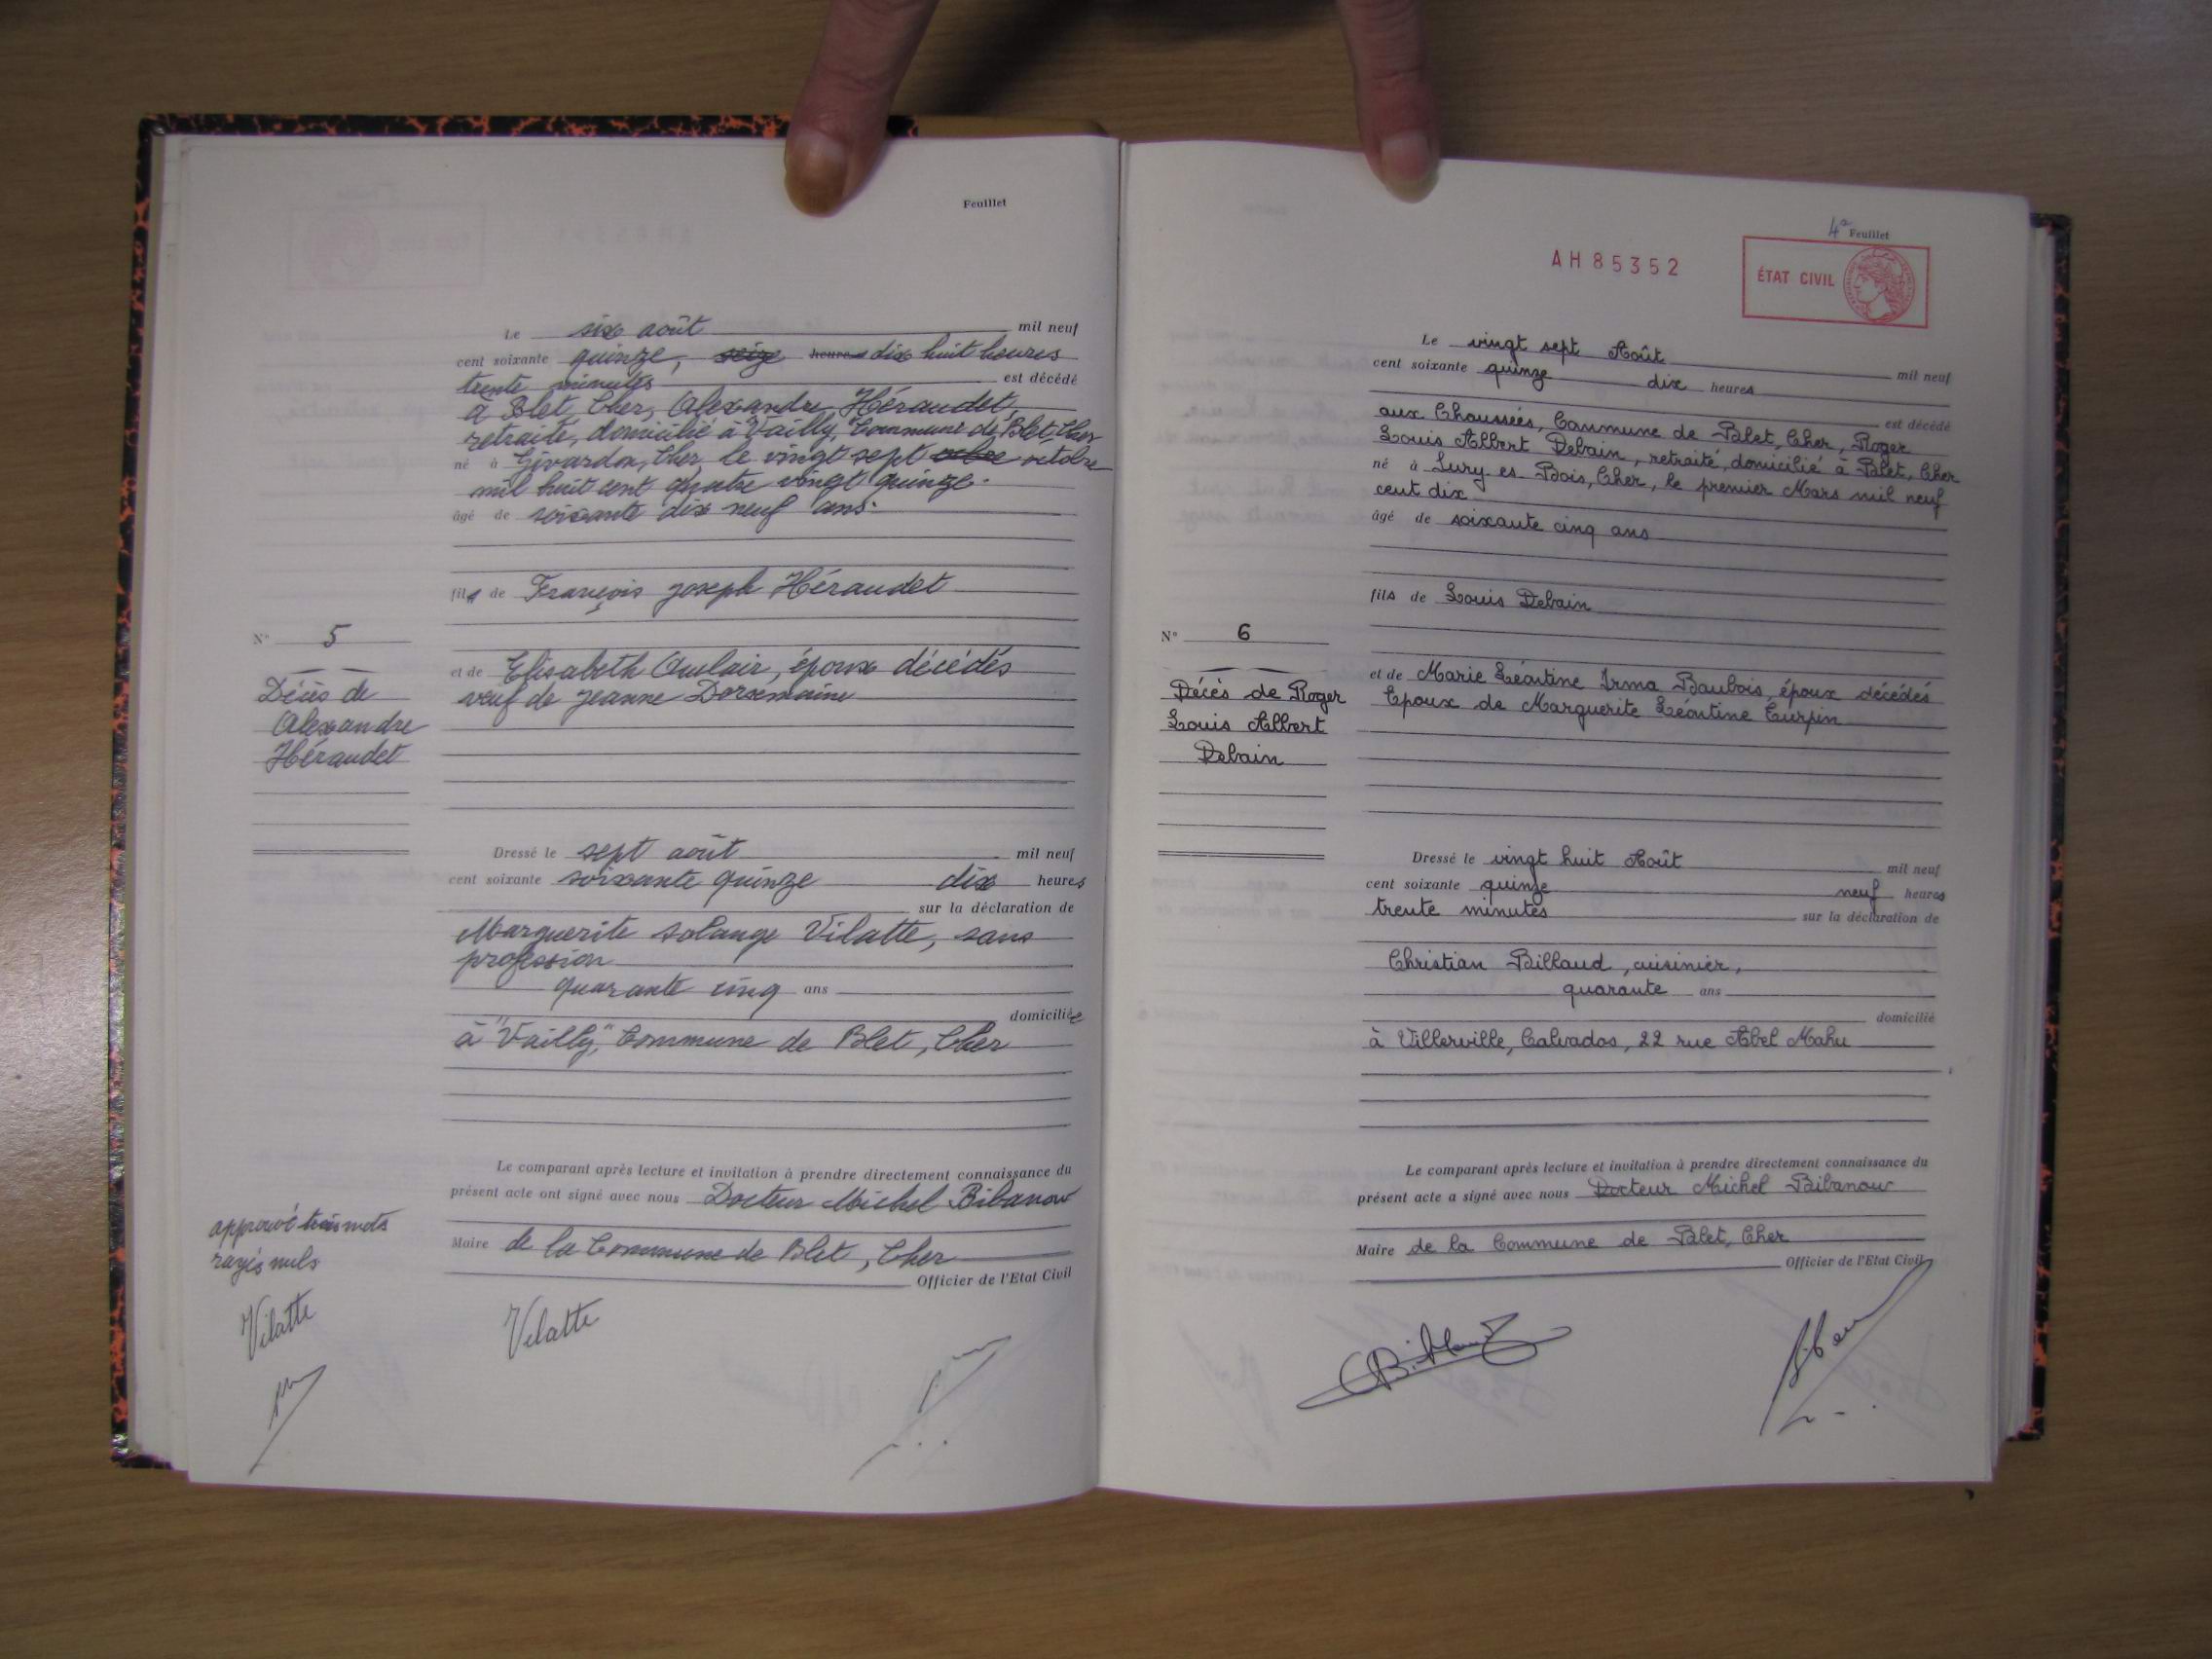 Feuillet
Le six août mil neuf
cent soixante quinze, seize heures dix huit heures
trente minutes est décédé
à Blet, Cher, Alexandre Héraudet,
retraité, domicilié à "Vailly", Commune de Blet, Cher
né à Givardon, Cher, le vingt sept octobre
mil huit cent quatre vingt quinze.
âgé de soixante dix neuf ans.
fils de François Joseph Héraudet
N° 5
et de Elisabeth époux décédés
veuf de Jeanne Dorsemaine
Décès de
Alexandre
Héraudet
Dressé le sept août mil neuf
cent soixante soixante quinze dix heures
sur la déclaration de
Marguerite Solange Vilatte, sans
profession
quarante cinq ans
domiciliée
à "Vailly", Commune de Blet, Cher
Le comparant après lecture et invitation à prendre directement connaissance du
présent acte ont signé avec nous Docteur Michel Bibanow
Maire de la Commune de Blet, Cher
Officier de l'Etat Civil
approuvé trois mots
rayés nuls
Vilatte
Vilatte
4e Feuillet
AH85352
ÉTAT CIVIL
Le vingt sept Août mil neuf
cent soixante quinze dix heures
est décédé
aux Chaussées, Commune de Blet, Cher, Roger
Louis Albert Debain, retraité, domicilié à Blet, Cher
né à Sury es Bois, Cher, le premier Mars mil neuf
cent dix
âgé de soixante cinq ans
fils de Louis Debain
N° 6
et de Marie Léontine Irma Baubois, époux décédés
Epoux de Marguerite Léontine Turpin
Décès de Roger
Louis Albert
Debain
Dressé le vingt huit Août mil neuf
cent soixante quinze neuf heures
trente minutes sur la déclaration de
Christian Billaud, cuisinier,
quarante ans
domicilié
à Villerville, Calvados, 22 rue Abel Mahu
Le comparant après lecture et invitation à prendre directement connaissance du
présent acte a signé avec nous Docteur Michel Bibanow
Maire de la Commune de Blet, Cher
Officier de l'Etat Civil
CBillaud